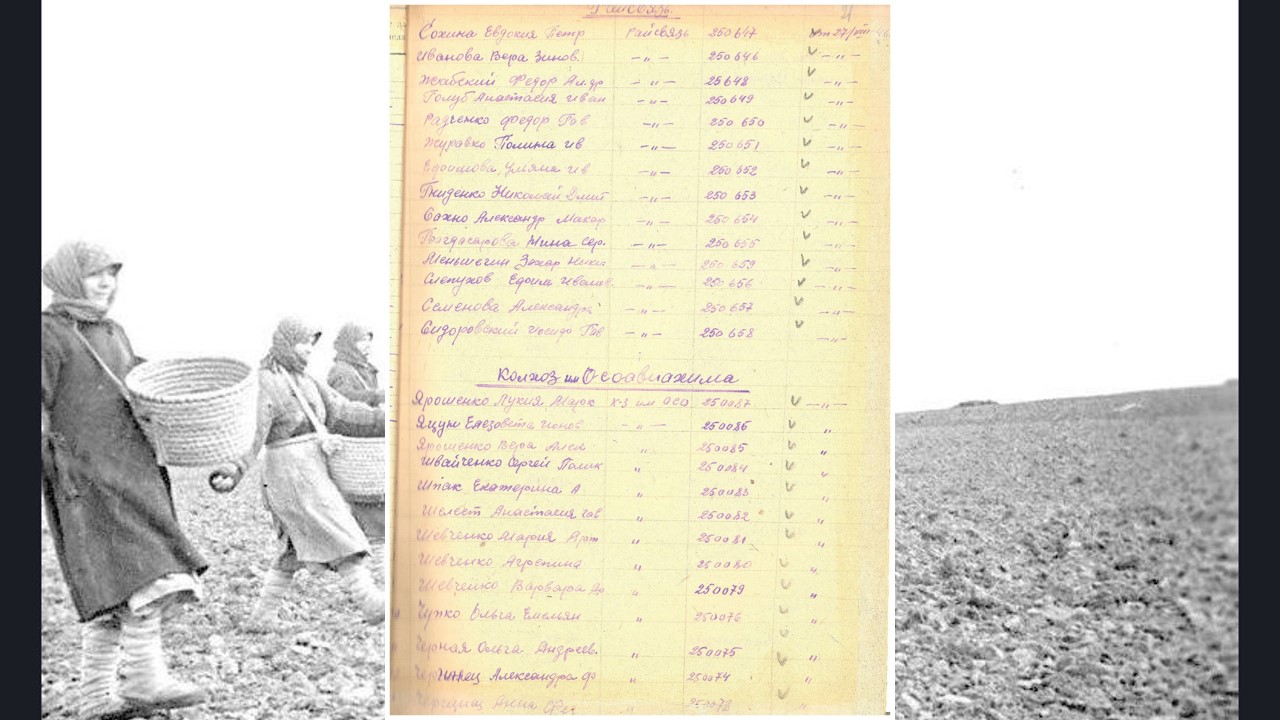 Райсвязь.
Сохина Евдокия Петр Райсвязь 250647 27/VIII 46
Иванова Вера Зинов. —„— 250646 —„—
Жабский Федор Ал.др —„— 25648 —„—
Голуб Анастасия Иван —„— 250649 —„—
Разченко Федор Гав —„— 250650 —„—
Журавко Полина Ив —„— 250651 —„—
Ульяна Ив —„— 250652 —„—
Гниденко Николай Дмит —„— 250653 —„—
Сахно Александр Макар —„— 250654 —„—
Нина Сер. —„— 250655 —„—
Захар Ники —„— 250659 —„—
Слепухов —„— 250656 —„—
Семенова Александра —„— 250657 —„—
Сидоровский Гав —„— 250658 —„—
Колхоз им Осоавиахима
Ярошенко Лукия Марк К-з им ОСО 250087 —„—
Яцун Елезовета Ионов —„— 250086 „
Ярошенко Вера Алек „ 250085 „
Швайченко Сергей Полик „ 250084 „
Шпак Екатерина А „ 250083 „
Шелест Анастасия Гав „ 250082 „
Шевченко Мария Арт „ 250081 „
Шевченко Агрепина „ 250080 „
Шевченко Варвара Ар „ 250079 „
Чупко Ольга Емельян „ 250076 „
Черная Ольга Андреев. „ 250075 „
Александра Ф „ 250074 „
Анна „ „